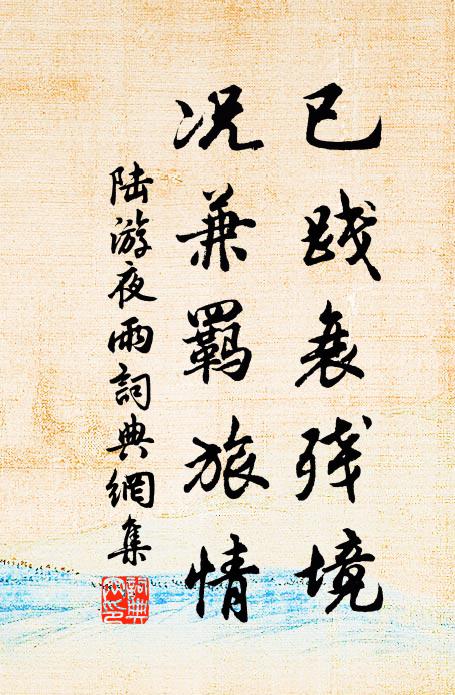 已践衰残境
况兼羁旅情
陆游夜雨詞典網集